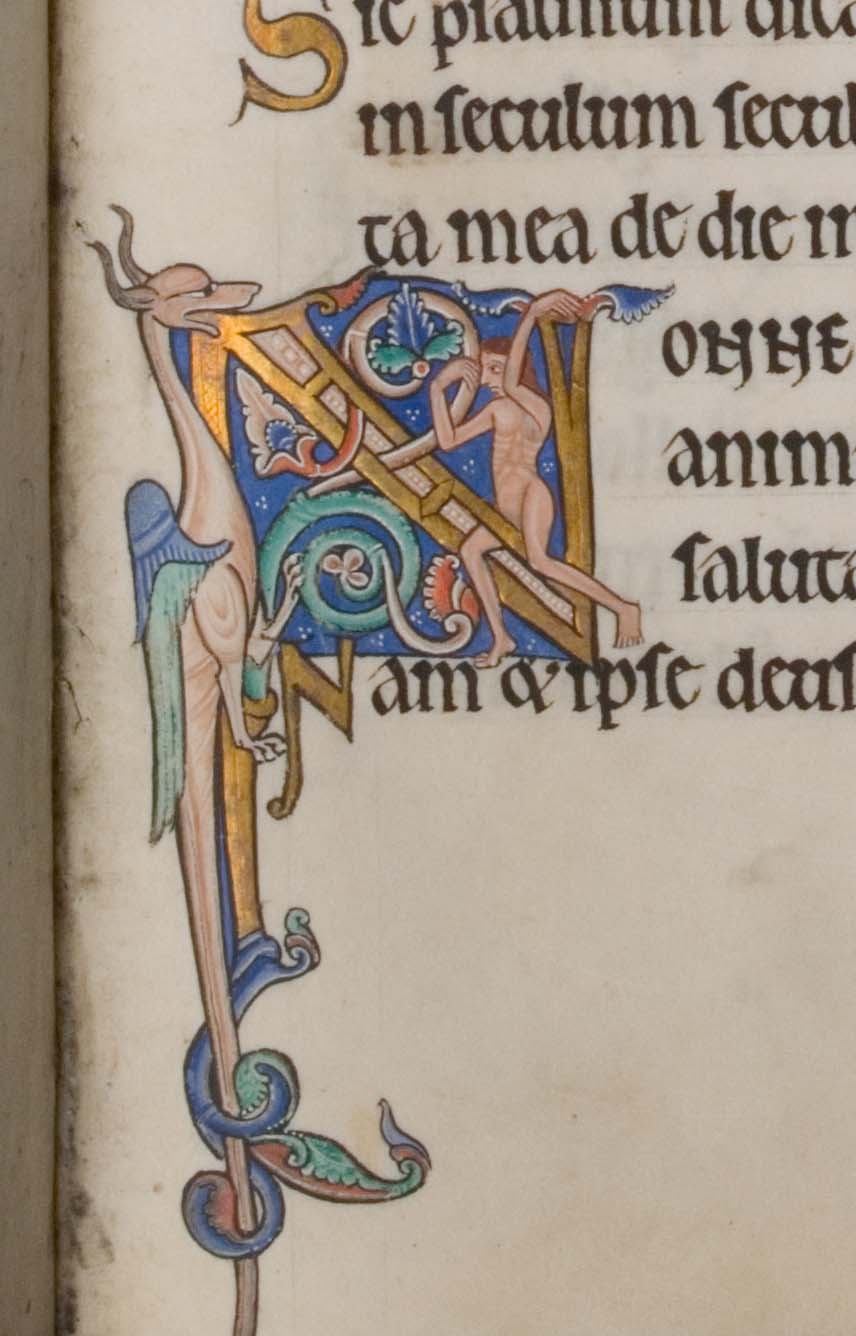 Sic psalmum dica
in seculum secul
ta mea de die in
NONNE
anim
saluta
Nam & ipse deus